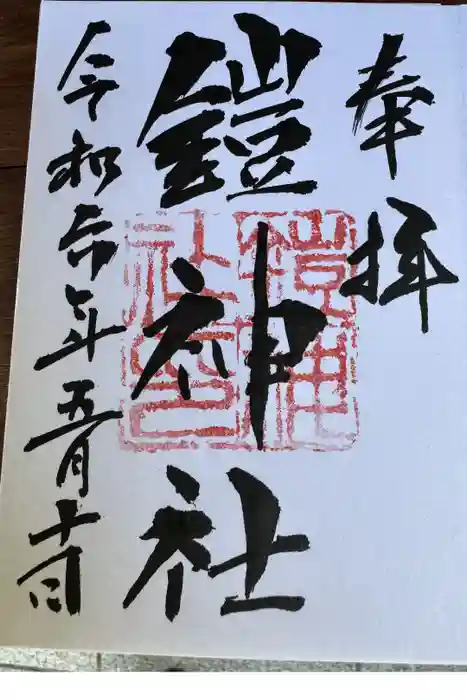 奉拝
鎧神社
令和六年五月十日
鎧神
社印